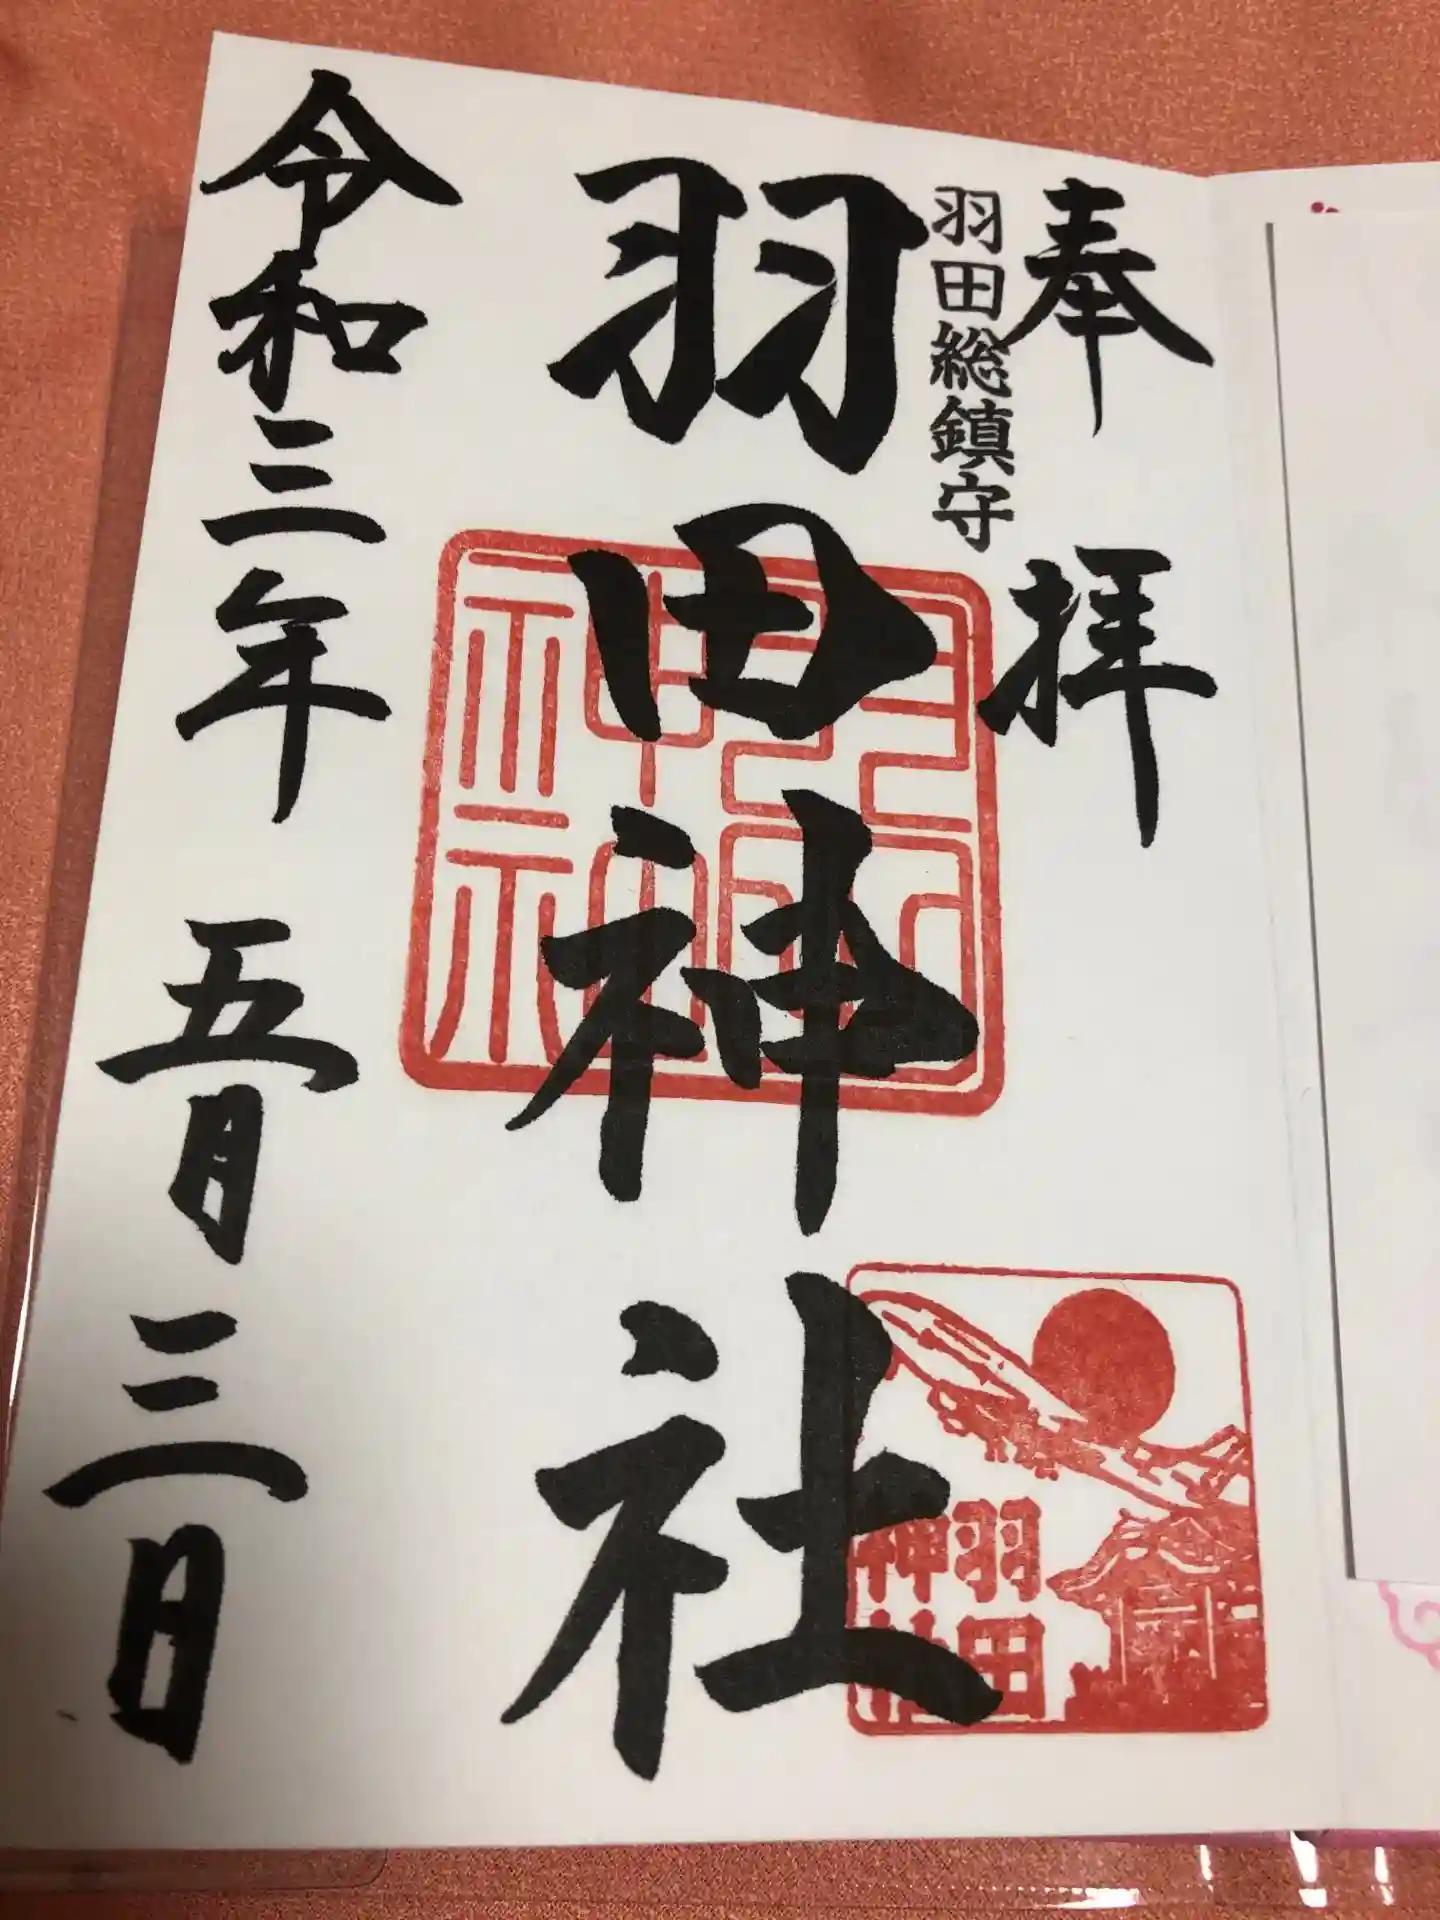 奉拝
羽田総鎮守
羽田神社
令和三年 五月三日
羽田
神社